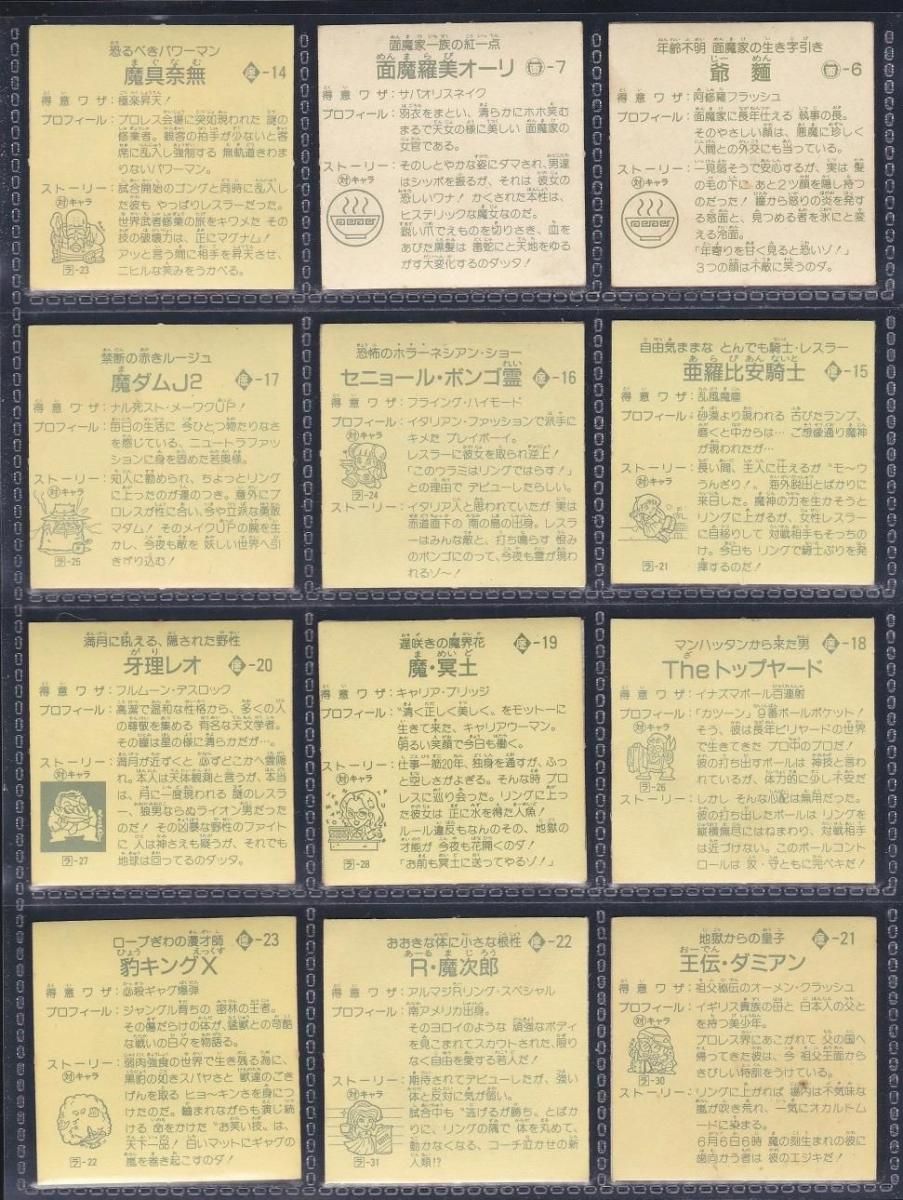 恐るべきパワーマン
魔具奈無 魔-14
得意ワザ：極楽昇天！
プロフィール：プロレス会場に突如現われた 謎の
修業者。観客の拍手が少ないと客
席に乱入し強制する 無軌道きわま
りないパワーマン。
ストーリー：試合開始のゴングと同時に乱入し
対キャラ
た彼も やっぱりレスラーだった。
世界武者修業の旅をキワメた その
技の破壊力は、正にマグナム！
アッと言う間に相手を昇天させ、
ニヒルな笑みをうかべる。
ラ-23
面魔家一族の紅一点
面魔羅美オーリ -7
得意ワザ：サパオリスネイク
プロフィール：羽衣をまとい、清らかにホホ笑む
まるで天女の様に美しい 面魔家の
女官である。
ストーリー：そのしとやかな姿にダマされ、男達
対キャラ
はシッポを振るが、それは 彼女の
恐しいワナ！ かくされた本性は、
ヒステリックな魔女なのだ。
鋭い爪でえものを切りさき、血を
あびた黒髪は 毒蛇にと天地をゆる
がす大変化するのダッタ！
年齢不明 面魔家の生き字引き
爺麺 -6
得意ワザ：阿修羅フラッシュ
プロフィール：面魔家に長年仕える 執事の長。
そのやさしい顔は、悪魔に珍しく
人間との外交にも当っている。
ストーリー：一見弱そうで安心するが、実は 髪
対キャラ
の毛の下に あと2ツ顔を隠し持つ
のだった！ 瞳から怒りの炎を発す
る怒面と、見つめる者を氷にと変
える冷面。
「年寄りを甘く見ると恐いゾ！」
3つの顔は不敵に笑うのダ。
禁断の赤きルージュ
魔ダムJ2 -17
得意ワザ：ナル死スト・メーワクUP！
プロフィール：毎日の生活に 今ひとつ物たりなさ
を感じている、ニュートラファッ
ションに身を固めた若奥様。
ストーリー：知人に勧められ、ちょっとリング
対キャラ
に上ったのが運のつき。意外にプ
ロレスが性に合い、今や立派な勇敢
マダム！ そのメイクUPの腕を生
かし、今夜も敵を 妖しい世界へ引
きずり込む！
ラ-25
恐怖のホラーネシアン・ショー
セニョール・ボンゴ霊 -16
得意ワザ：フライング・ハイモード
プロフィール：イタリアン・ファッションで派手に
対キャラ
キメた プレイボーイ。
レスラーに彼女を取られ逆上！
「このウラミはリングではらす！」
との理由で デビューしたらしい。
ラ-24
ストーリー：イタリア人と思われていたが 実は
赤道直下の 南の島の出身。レスラ
ーはみんな敵と、打ち鳴らす 恨み
のボンゴにのって、今夜も霊が現わ
れるゾ～！
自由気ままな とんでも騎士・レスラー
亜羅比安騎士 -15
得意ワザ：乱風魔塵
プロフィール：砂漠より現われる 古びたランプ、
磨くと中からは… ご想像通り魔神
が現われたが…
ストーリー：長い間、主人に仕えるが“モ～ウ
対キャラ
うんざり！„ 海外脱出とばかりに
来日した。魔神の力を生かそうと
リングに上がるが、女性レスラー
に目移りして 対戦相手もそっちの
け。今日も リングで騎士ぶりを発
揮するのだ！
ラ-21
満月に吼える、隠された野性
牙理レオ -20
得意ワザ：フルムーン・デスロック
プロフィール：高潔で温和な性格から、多くの人
の尊敬を集める 有名な天文学者。
その瞳は星の様に清らかだが…。
ストーリー：満月が近ずくと 必ずどこかへ雲隠
対キャラ
れ。本人は天体観測と言うが、本当
は、月に一度現われる 謎のレスラ
ー、狼男ならぬライオン男だった
のだ！ その凶暴な野性のファイト
に 人は神さえも疑うが、それでも
地球は回ってるのダッタ。
ラ-27
遅咲きの魔界花
魔・冥土 -19
得意ワザ：キャリア・ブリッジ
プロフィール：“清く正しく美しく„をモットーに
生きて来た、キャリアウーマン。
明るい笑顔で今日も働く。
ストーリー：仕事一筋20年、独身を通すが、ふっ
対キャラ
と空しさがよぎる。そんな時 プロ
レスに巡り合った。リングに上っ
た彼女は 正に水を得た人魚！
ルール違反もなんのその、地獄の
才能が 今夜も花開くのダ！
「お前も冥土に送ってやるゾ！」
ラ-28
マンハッタンから来た男
Theトップヤード -18
得意ワザ：イナズマボール百連射
プロフィール：「カツーン」9番ボールポケット！
対キャラ
そう、彼は長年ビリヤードの世界
で生きてきた プロ中のプロだ！
彼の打ち出すボールは 神技と言わ
れているが、体力的に少し不安だ
ラ-26
ストーリー：しかし そんな心配は無用だった。
彼の打ち出したボールは リングを
縦横無尽にはねまわり、対戦相手
は近づけない。このボールコント
ロールは 攻・守ともに完ペキだ！
ロープぎわの漫才師
豹キングX -23
得意ワザ：必殺ギャグ爆弾
プロフィール：ジャングル育ちの 密林の王者。
その傷だらけの体が、猛獣との苛酷
な戦いの日々を物語る。
ストーリー：弱肉強食の世界で生き残る為に、
対キャラ
黒豹の如きスバヤさと 獣達のごき
げんを取る ヒョ～キンさを身につ
けたのだ。噛まれながらも演じ続け
る 命をかけた“お笑い技„は、
天下一品！ 白いマットにギャグの
嵐を巻き起こすのダ！
ラ-22
おおきな体に小さな根性
R・魔次郎 -22
得意ワザ：アルマジRリング・スペシャル
プロフィール：南アメリカ出身。
そのヨロイのような 頑強なボディ
を見こまれてスカウトされた、限
りなく自由を愛する若人だ！
ストーリー：期待されてデビューしたが、強い
対キャラ
体と反対に気が弱い。
試合中も“逃げるが勝ち„とばか
りに、リングの隅で 体を丸めて、
動かなくなる、コーチ泣かせの新
人類!?
ラ-31
地獄からの皇子
王伝・ダミアン -21
得意ワザ：祖父秘伝のオーメン・クラッシュ
プロフィール：イギリス貴族の母と 日本人の父と
対キャラ
を持つ美少年。
プロレス界にあこがれて 父の国へ
帰ってきた彼は、今 祖父王面から
きびしい特訓をうけている。
ラ-30
ストーリー：リングに上がれば 場内は不気味な
嵐が吹き荒れ、一気にオカルトム
ードに染まる。
6月6日6時 魔の刻生まれの彼に
歯向かう者は 彼のエジキだ！